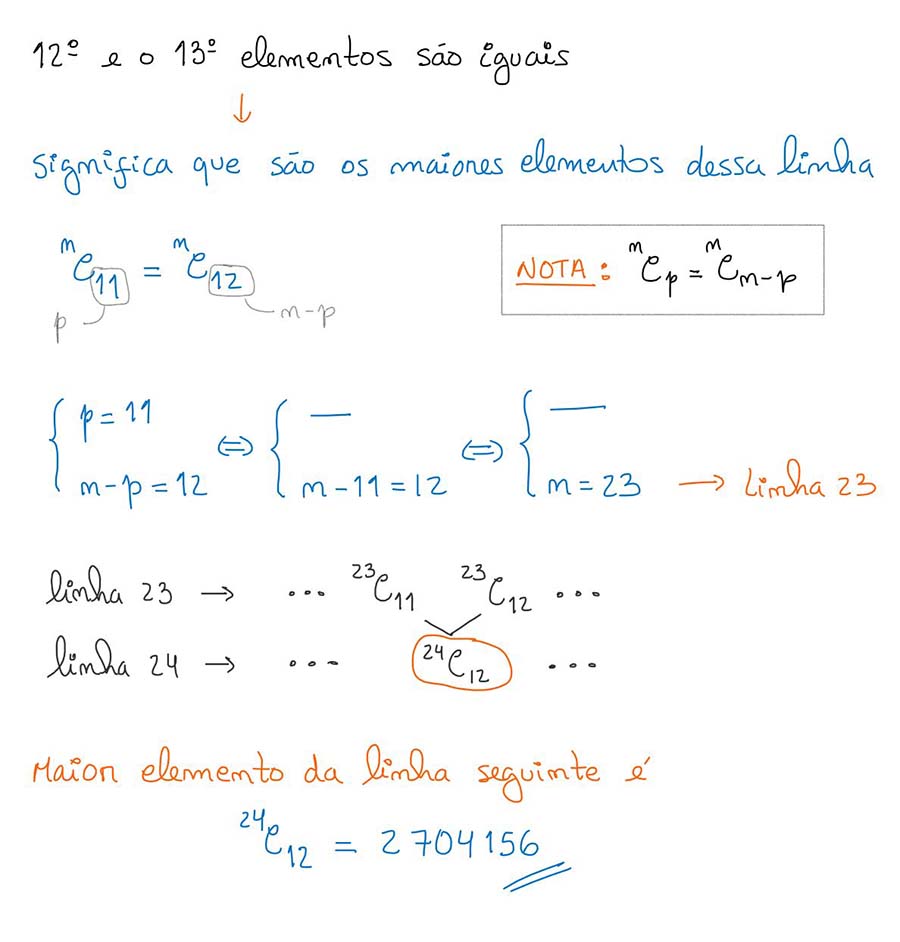 12º e o 13º elementos são iguais
↓
significa que são os maiores elementos dessa linha
ⁿC₁₁ = ⁿC₁₂
p n-p
NOTA: ⁿCₚ = ⁿCₙ₋ₚ
{ p = 11 ⇔ { — ⇔ { —
n-p = 12 n-11 = 12 n = 23 → Linha 23
linha 23 → ... ²³C₁₁ ²³C₁₂ ...
linha 24 → ... ²⁴C₁₂ ...
Maior elemento da linha seguinte é
²⁴C₁₂ = 2 704 156